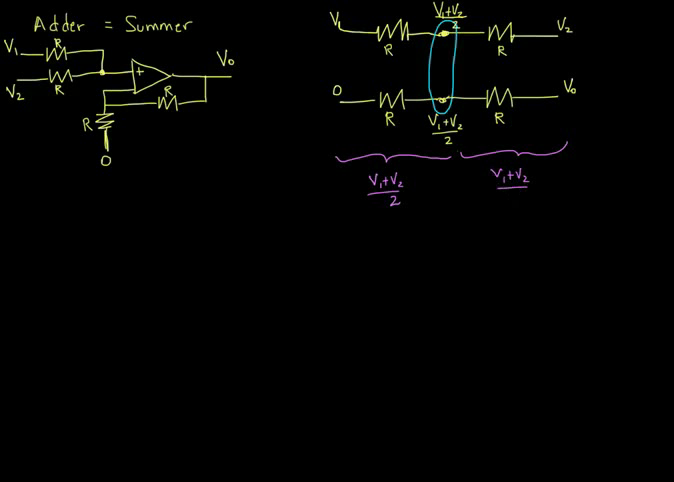 Adder = Summer
V₁ R
V₂ R
+
R
V₀
R
0
V₁ R (V₁+V₂)/2 R V₂
0 R (V₁+V₂)/2 R V₀
(V₁+V₂)/2
V₁+V₂